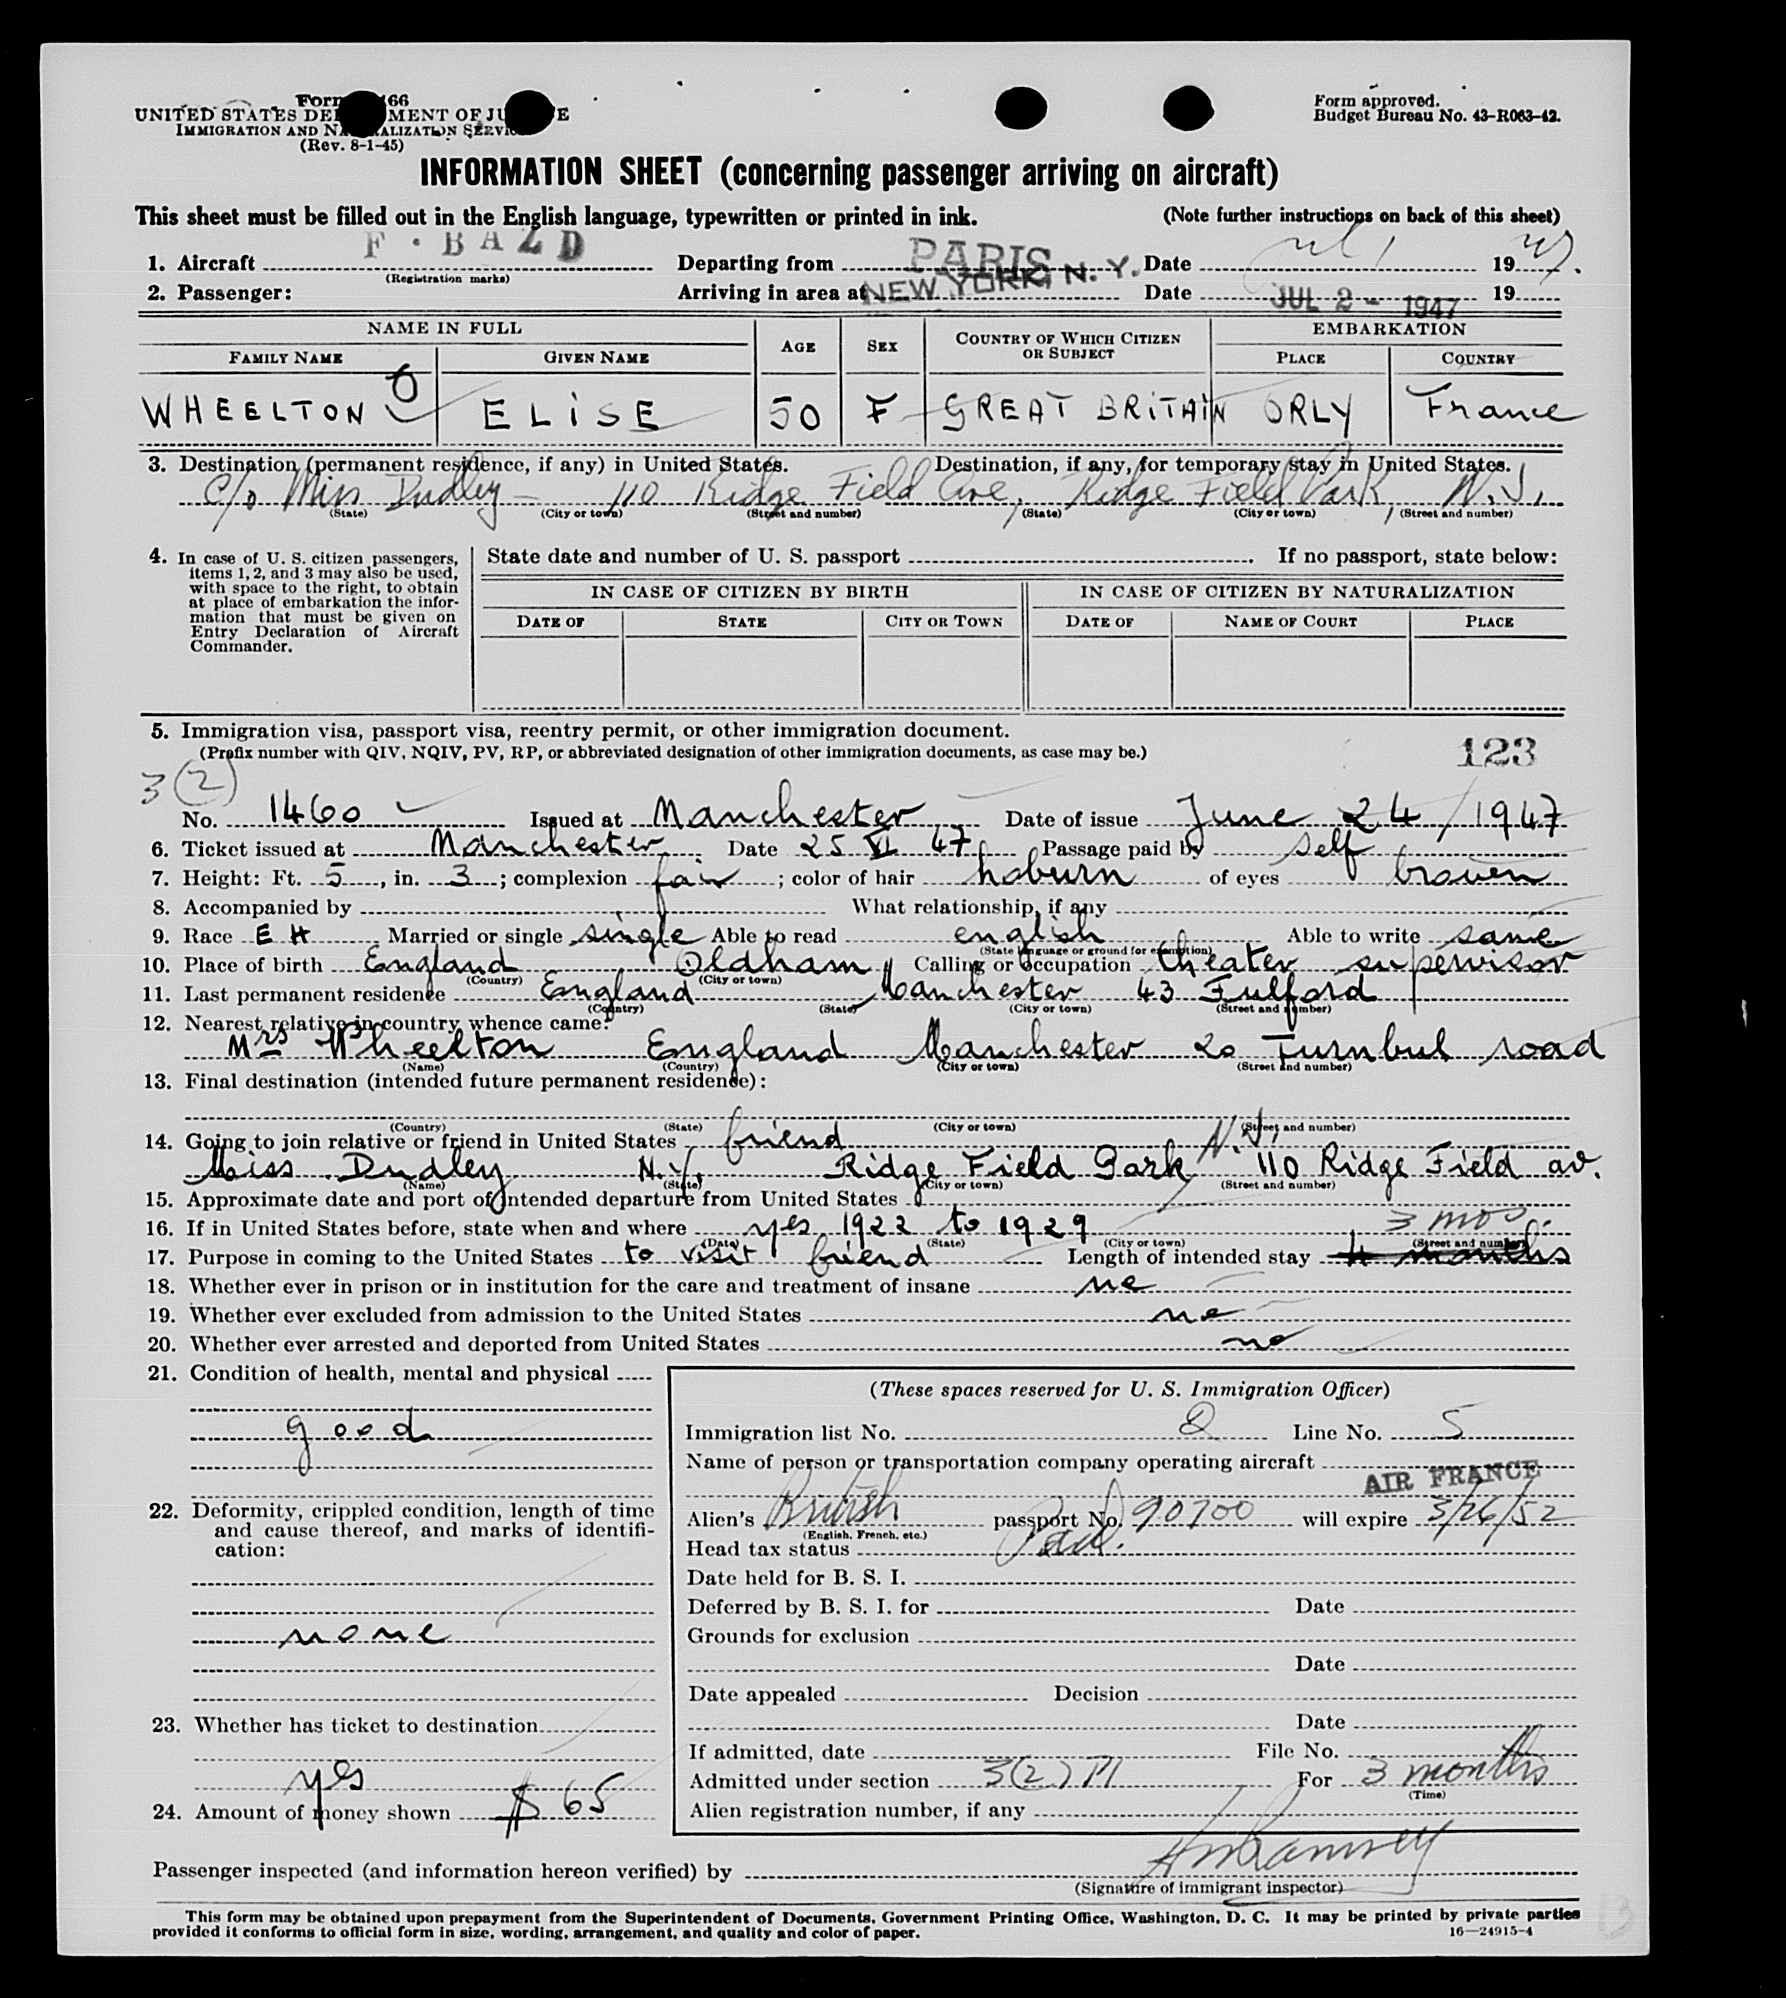 Form 466
UNITED STATES DEPARTMENT OF JUSTICE
IMMIGRATION AND NATURALIZATION SERVICE
(Rev. 8-1-45)
Form approved.
Budget Bureau No. 43-R063-42.
INFORMATION SHEET (concerning passenger arriving on aircraft)
This sheet must be filled out in the English language, typewritten or printed in ink. (Note further instructions on back of this sheet)
1. Aircraft F·BAZD Departing from PARIS Date Jul 1 1947.
(Registration marks)
2. Passenger: Arriving in area at NEW YORK, N. Y. Date JUL 2 - 1947 19
NAME IN FULL AGE SEX COUNTRY OF WHICH CITIZEN OR SUBJECT EMBARKATION
FAMILY NAME GIVEN NAME PLACE COUNTRY
WHEELTON ELISE 50 F GREAT BRITAIN ORLY France
3. Destination (permanent residence, if any) in United States. Destination, if any, for temporary stay in United States.
c/o Miss Dudley - 110 Ridge Field Ave, Ridge Field Park, N.J.
(State) (City or town) (Street and number) (State) (City or town) (Street and number)
4. In case of U. S. citizen passengers, items 1, 2, and 3 may also be used, with space to the right, to obtain at place of embarkation the information that must be given on Entry Declaration of Aircraft Commander.
State date and number of U. S. passport If no passport, state below:
IN CASE OF CITIZEN BY BIRTH IN CASE OF CITIZEN BY NATURALIZATION
DATE OF STATE CITY OR TOWN DATE OF NAME OF COURT PLACE
5. Immigration visa, passport visa, reentry permit, or other immigration document.
(Prefix number with QIV, NQIV, PV, RP, or abbreviated designation of other immigration documents, as case may be.) 123
3 (2)
No. 1460 Issued at Manchester Date of issue June 24/1947
6. Ticket issued at Manchester Date 25 VI 47 Passage paid by self
7. Height: Ft. 5, in. 3; complexion fair; color of hair hoburn of eyes brown
8. Accompanied by What relationship, if any
9. Race E H Married or single single Able to read english Able to write same
(State language or ground for exemption)
10. Place of birth England Oldham Calling or occupation theater supervisor
(Country) (City or town)
11. Last permanent residence England Manchester 43 Fulford
(Country) (State) (City or town) (Street and number)
12. Nearest relative in country whence came:
Mrs Wheelton England Manchester 20 Turnbul road
(Name) (Country) (City or town) (Street and number)
13. Final destination (intended future permanent residence):
(Country) (State) (City or town) (Street and number)
14. Going to join relative or friend in United States friend N.J.
Miss Dudley N.Y. Ridge Field Park 110 Ridge Field av.
(Name) (State) (City or town) (Street and number)
15. Approximate date and port of intended departure from United States
16. If in United States before, state when and where yes 1922 to 1929 3 mos.
(Date) (State) (City or town) (Street and number)
17. Purpose in coming to the United States to visit friend Length of intended stay 4 months
18. Whether ever in prison or in institution for the care and treatment of insane no
19. Whether ever excluded from admission to the United States no
20. Whether ever arrested and deported from United States no
21. Condition of health, mental and physical
good
22. Deformity, crippled condition, length of time and cause thereof, and marks of identification:
none
23. Whether has ticket to destination
yes
24. Amount of money shown $ 65
(These spaces reserved for U. S. Immigration Officer)
Immigration list No. 2 Line No. 5
Name of person or transportation company operating aircraft
AIR FRANCE
Alien's British passport No. 90700 will expire 3/26/52
(English, French, etc.)
Head tax status Paid.
Date held for B. S. I.
Deferred by B. S. I. for Date
Grounds for exclusion
Date
Date appealed Decision
Date
If admitted, date File No.
Admitted under section 3(2) For 3 months
(Time)
Alien registration number, if any
Passenger inspected (and information hereon verified) by
(Signature of immigrant inspector)
This form may be obtained upon prepayment from the Superintendent of Documents, Government Printing Office, Washington, D. C. It may be printed by private parties
provided it conforms to official form in size, wording, arrangement, and quality and color of paper. 16—24915-4